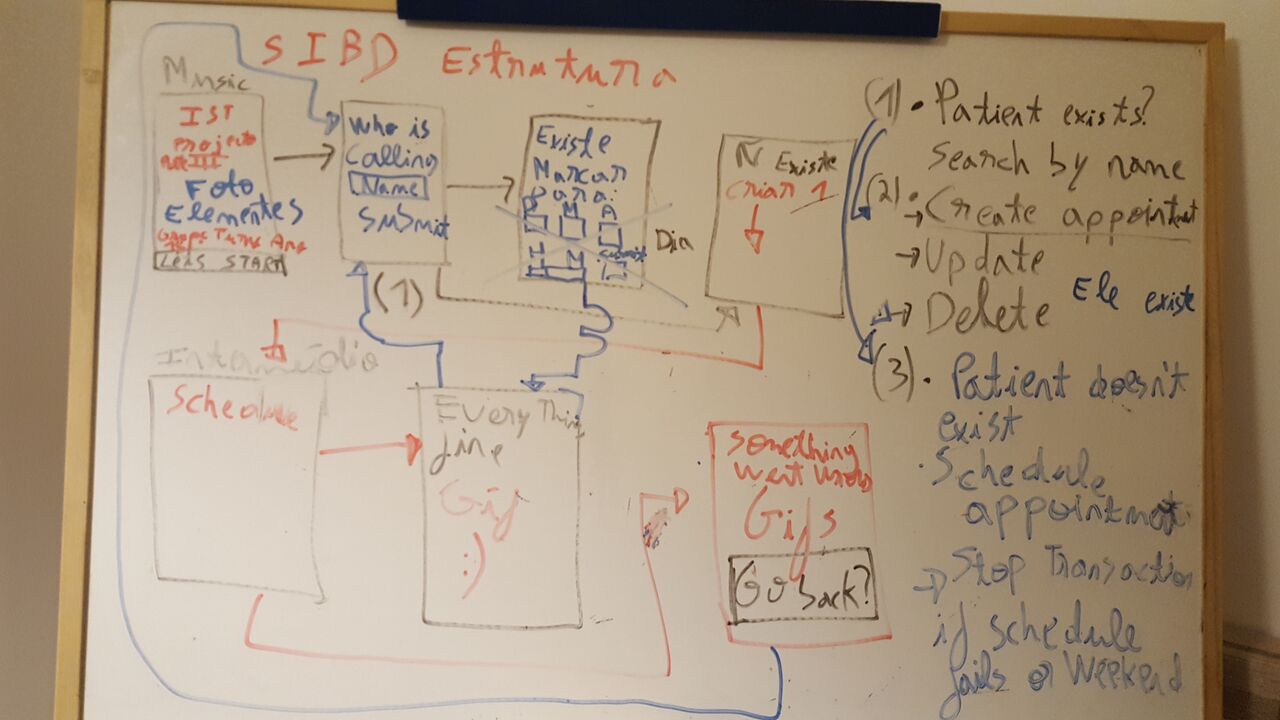 SIBD Estrutura
Music
IST
Projecto
Part III
Foto
Elementos
LETS START
Who is
Calling
Name
submit
Existe
Marcar
para:
D M A
H M submit
Dia
Ñ Existe
Criar 1
(1)
Intermédio
Schedule
Everything
fine
Gif
:)
Something
went wrong
Gifs
Go back?
(1) • Patient exists?
Search by name
(2) • → Create appointment
→ Update
→ Delete
Ele existe
(3) • Patient doesn't
exist
• Schedule
appointment
→ Stop Transaction
if schedule
fails or Weekend